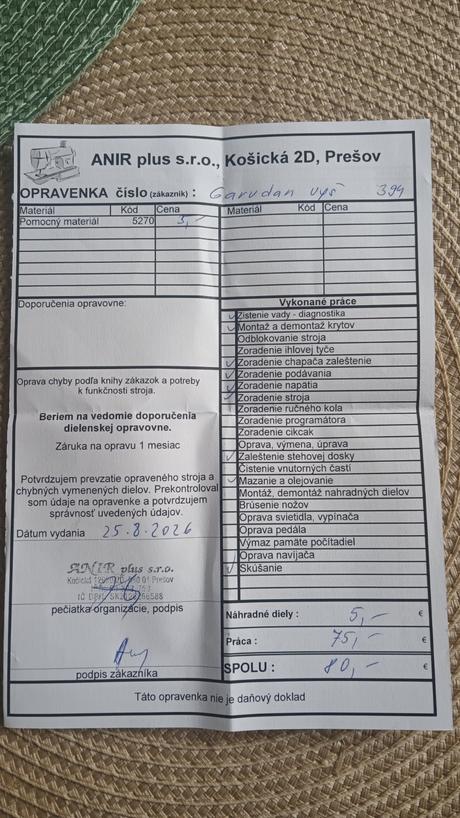 ANIR plus s.r.o., Košická 2D, Prešov
OPRAVENKA číslo (zákazník) : Garudan vyš 394
Materiál Kód Cena
Pomocný materiál 5270 3,-
Materiál Kód Cena
Doporučenia opravovne:
Oprava chyby podľa knihy zákazok a potreby
k funkčnosti stroja.
Beriem na vedomie doporučenia
dielenskej opravovne.
Záruka na opravu 1 mesiac
Potvrdzujem prevzatie opraveného stroja a
chybných vymenených dielov. Prekontroloval
som údaje na opravenke a potvrdzujem
správnosť uvedených údajov.
Dátum vydania 25.8.2026
ANIR plus s.r.o.
Košická Prešov
pečiatka organizácie, podpis
podpis zákazníka
Vykonané práce
Zistenie vady - diagnostika
Montaž a demontaž krytov
Odblokovanie stroja
Zoradenie ihlovej tyče
Zoradenie chapača zaleštenie
Zoradenie podávania
Zoradenie napätia
Zoradenie stroja
Zoradenie ručného kola
Zoradenie programátora
Zoradenie cikcak
Oprava, výmena, úprava
Zaleštenie stehovej dosky
Čistenie vnutorných častí
Mazanie a olejovanie
Montáž, demontáž nahradných dielov
Brúsenie nožov
Oprava svietidla, vypínača
Oprava pedála
Výmaz pamäte počítadiel
Oprava navíjača
Skúšanie
Náhradné diely : 5,- €
Práca : 75,- €
SPOLU : 80,- €
Táto opravenka nie je daňový doklad